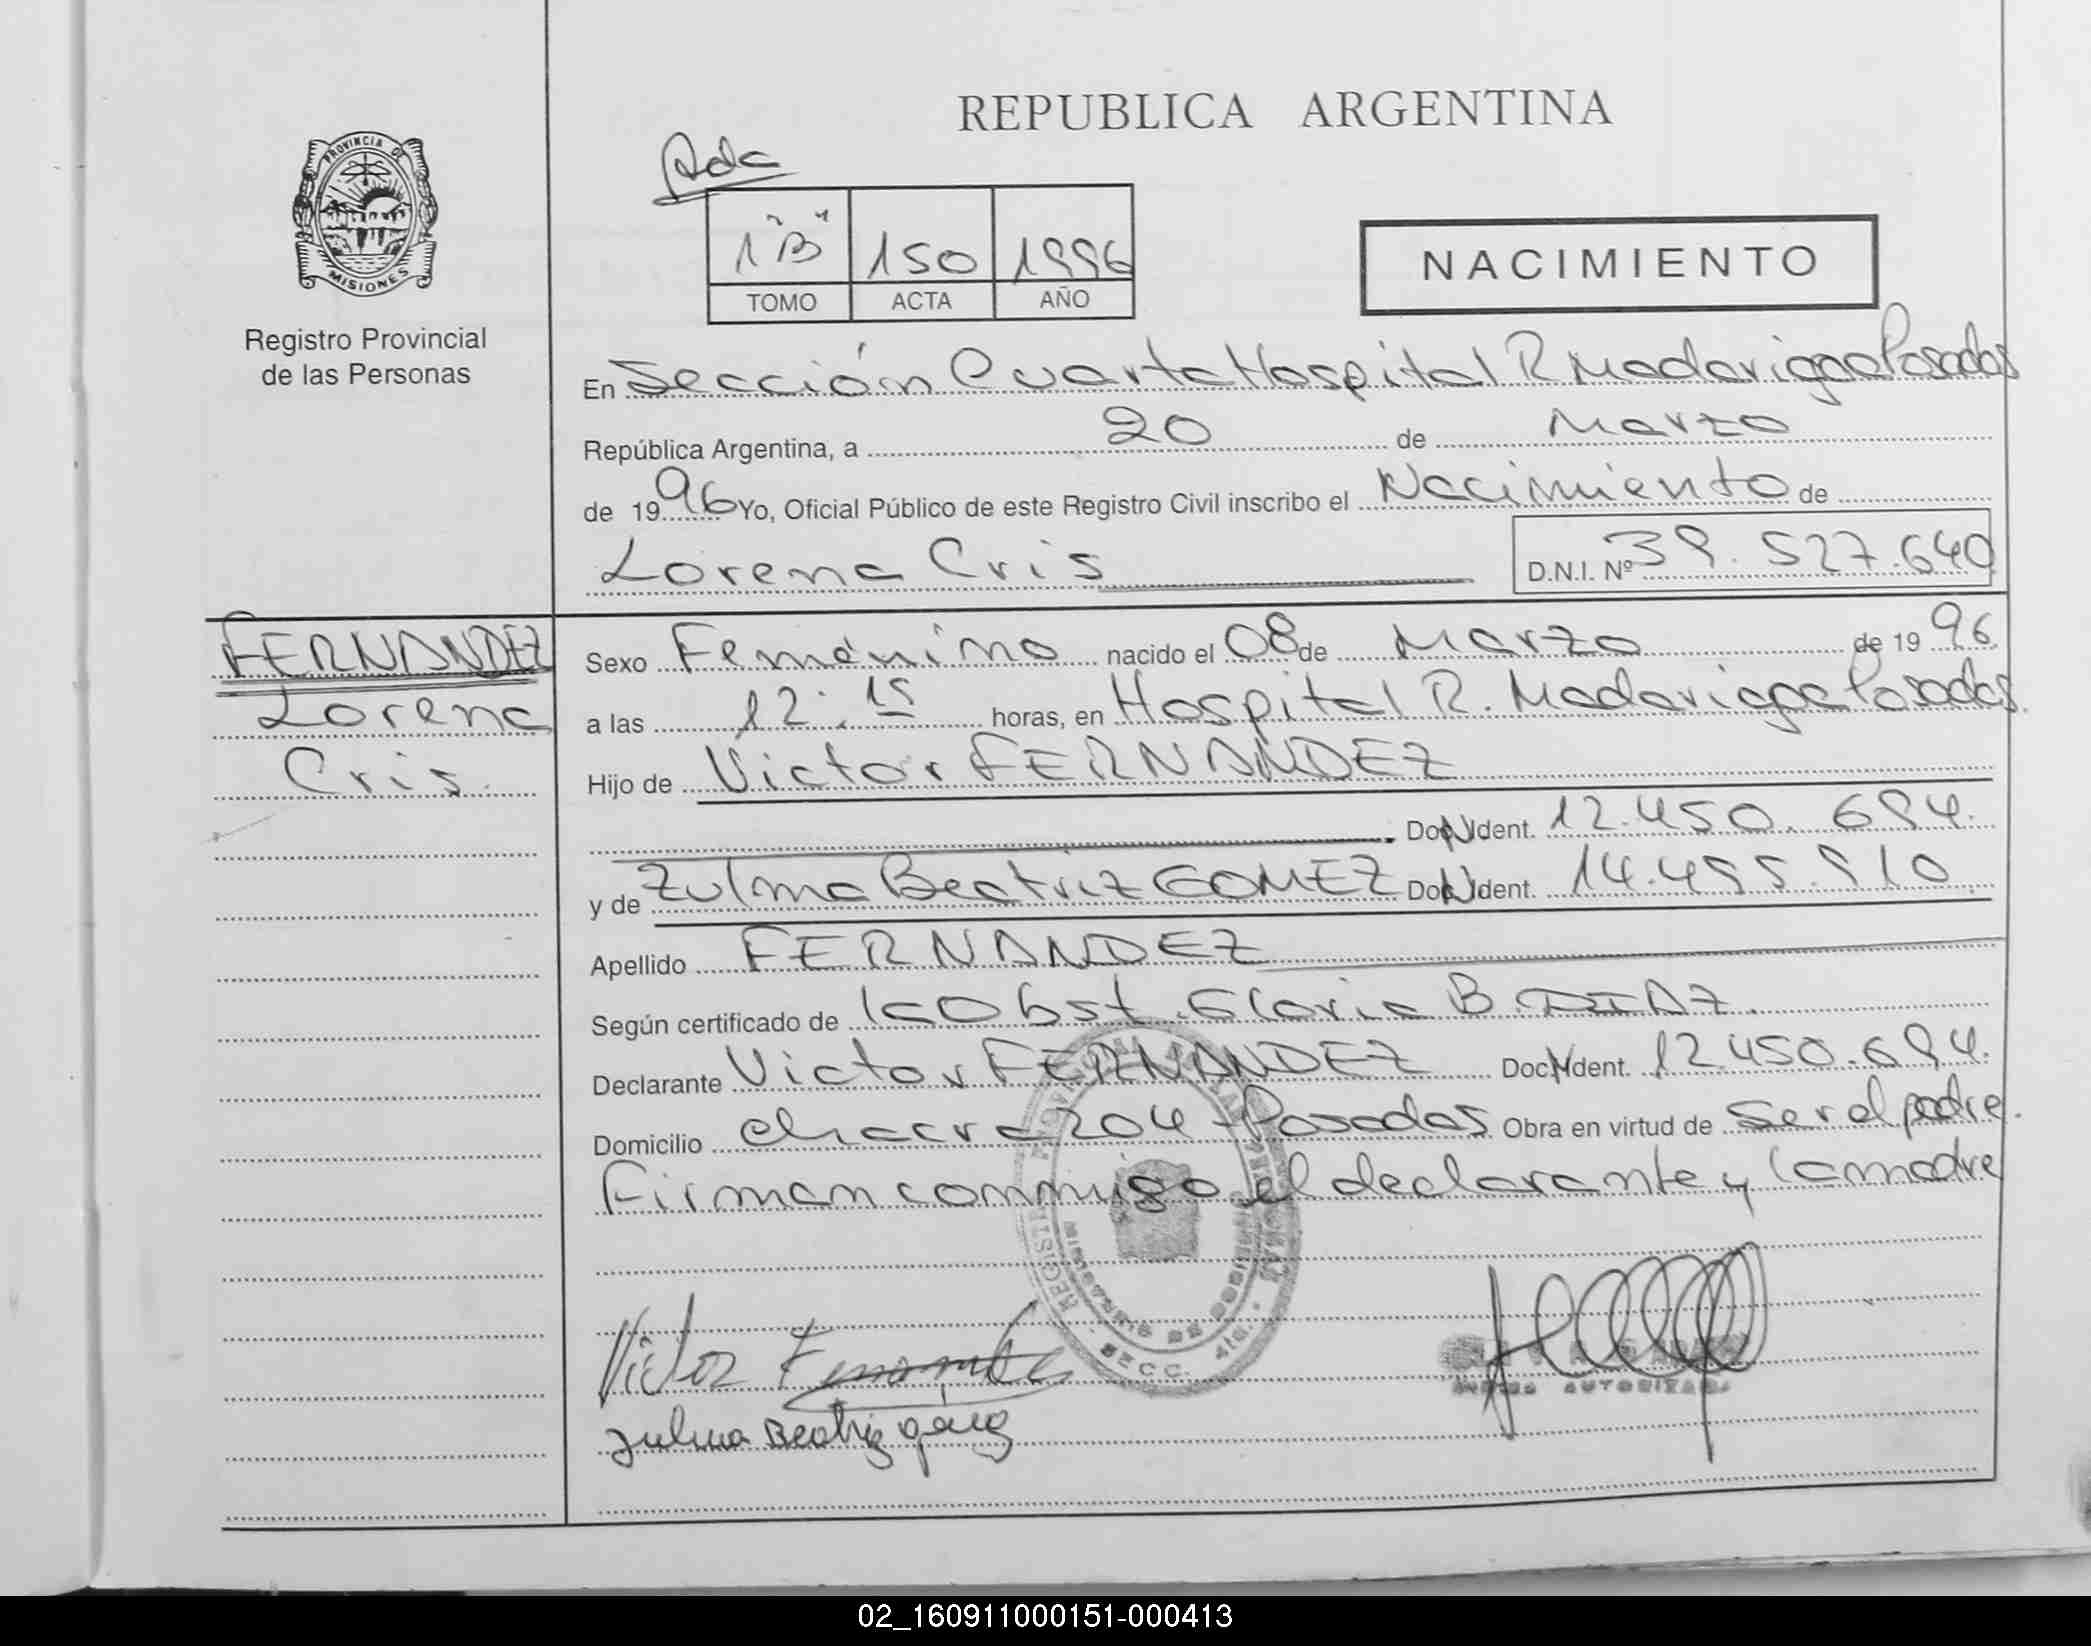 REPUBLICA ARGENTINA
PROVINCIA DE
MISIONES
Registro Provincial
de las Personas
1 "B" 150 1996
TOMO ACTA AÑO
NACIMIENTO
En Sección Cuarta Hospital R Madariaga Posadas
República Argentina, a 20 de Marzo
de 1996 Yo, Oficial Público de este Registro Civil inscribo el Nacimiento de
Lorena Cris D.N.I. Nº 39.527.640
FERNANDEZ
Lorena
Cris.
Sexo Femenino nacido el 08 de Marzo de 1996
a las 12:15 horas, en Hospital R. Madariaga Posadas.
Hijo de Victor FERNANDEZ
Doc. Ident. 12.450.694.
y de Zulma Beatriz GOMEZ Doc. Ident. 14.495.910
Apellido FERNANDEZ
Según certificado de la Obst. Gloria B. DIAZ.
Declarante Victor FERNANDEZ Doc. Ident. 12.450.694.
Domicilio chacra 204 - Posadas Obra en virtud de ser el padre.
Firman conmigo el declarante y la madre
SECC. 4ta.
Victor Fernandez
AUTORIZADA
Zulma Beatriz
02_160911000151-000413